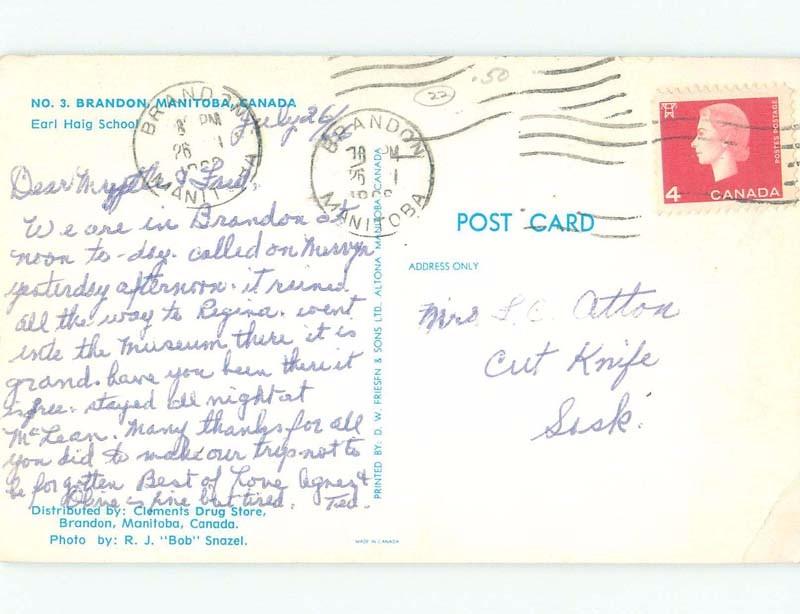 NO. 3. BRANDON, MANITOBA, CANADA
Earl Haig School
July 26/
BRANDON
PM
26
MANITOBA
BRANDON
PM
26
MANITOBA
.50
22
4
CANADA
POSTES POSTAGE
Dear Myrtle &
We are in Brandon at
noon to-day. called on Mervyn
yesterday afternoon. it rained
all the way to Regina. went
into the Museum there it is
grand. have you been there it
is free. stayed all night at
McLean. Many thanks for all
you did to make our trip not to
be forgotten Best of Love Agnes &
is fine but tired. Ted.
Distributed by: Clements Drug Store,
Brandon, Manitoba, Canada.
Photo by: R. J. "Bob" Snazel.
PRINTED BY: D. W. FRIESEN & SONS LTD., ALTONA, MANITOBA, CANADA
POST CARD
ADDRESS ONLY
Mrs L. C. Atton
Cut Knife
Sask.
MADE IN CANADA